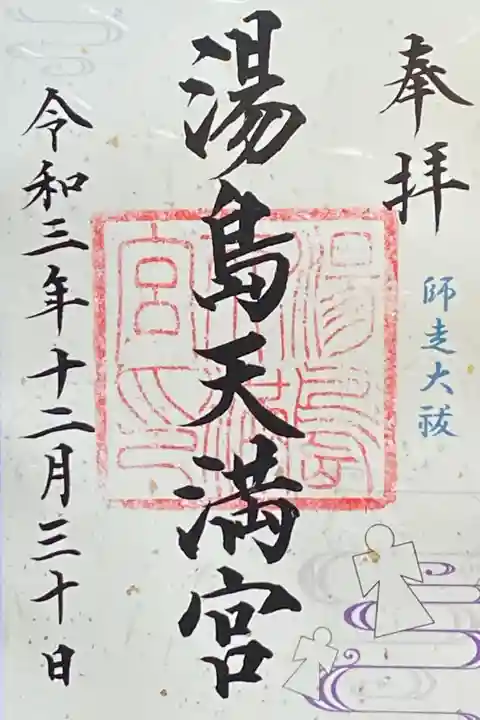 奉拝
師走大祓
湯島天満宮
令和三年十二月三十日